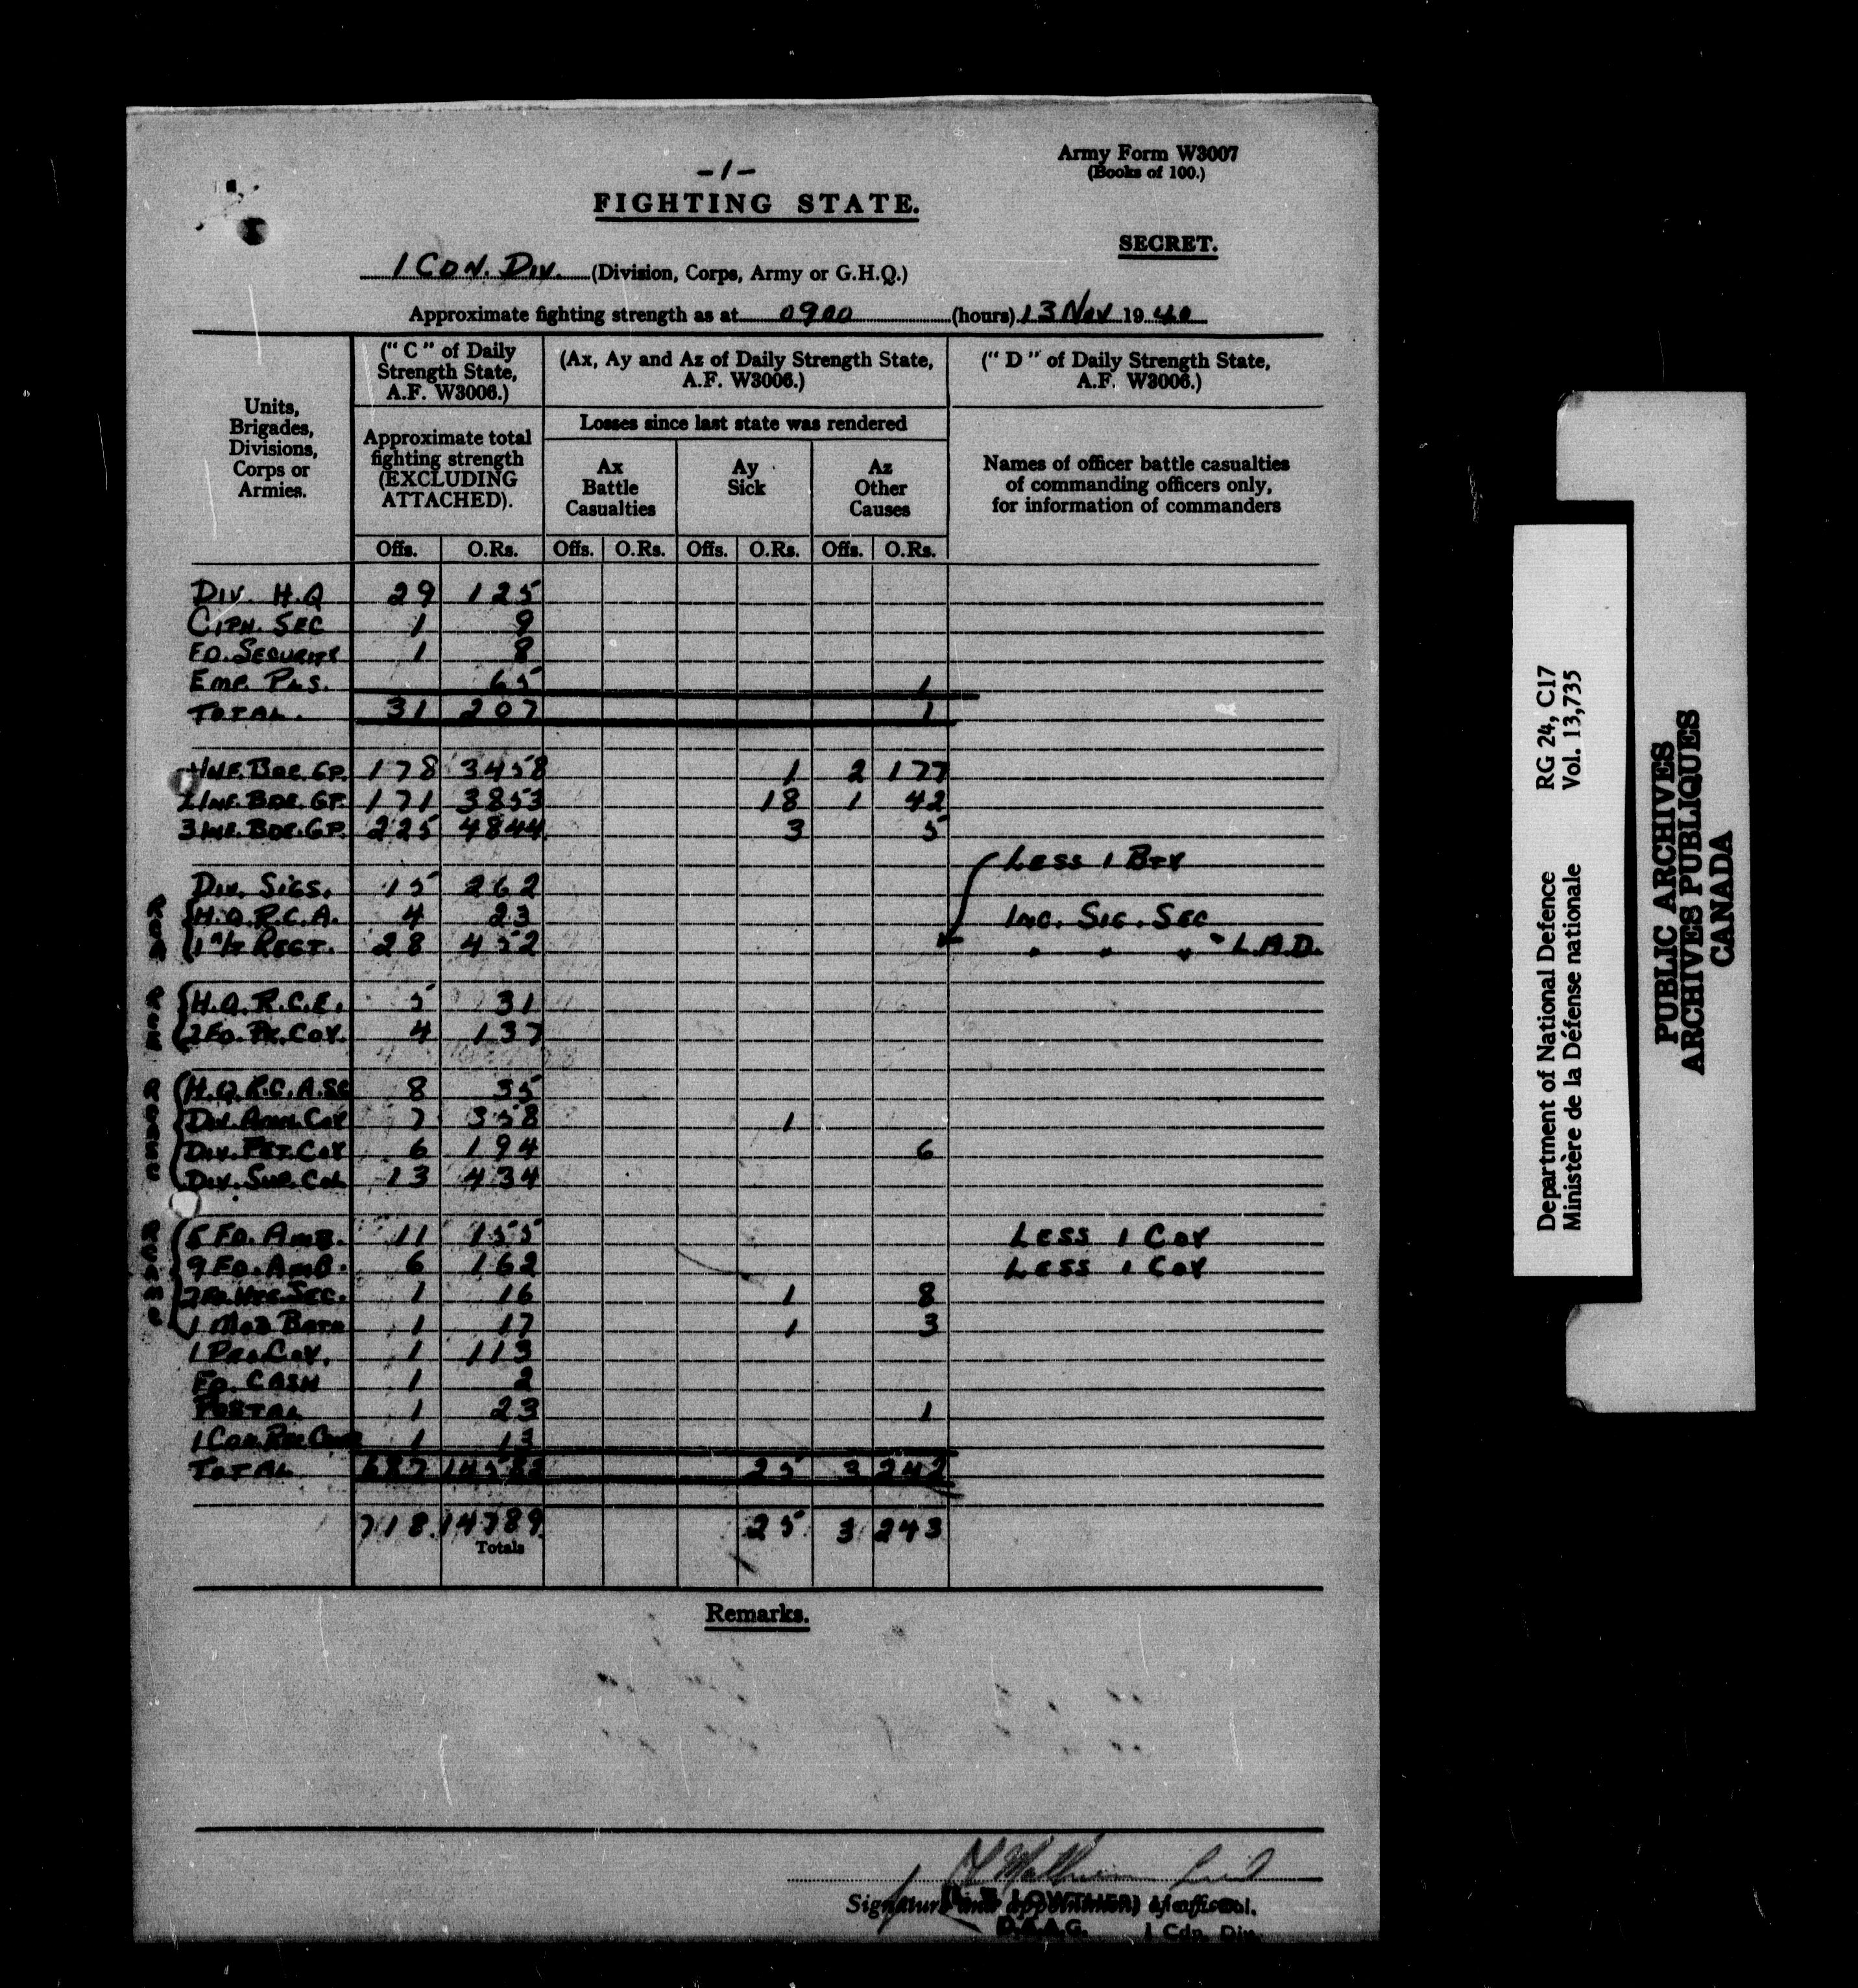 -1-
Army Form W3007
(Books of 100.)
FIGHTING STATE.
SECRET.
1 CDN. DIV. (Division, Corps, Army or G.H.Q.)
Approximate fighting strength as at 0900 (hours) 13 Nov 1940
Units, Brigades, Divisions, Corps or Armies.
("C" of Daily Strength State, A.F. W3006.)
(Ax, Ay and Az of Daily Strength State, A.F. W3006.)
("D" of Daily Strength State, A.F. W3006.)
Approximate total fighting strength (EXCLUDING ATTACHED).
Losses since last state was rendered
Ax Battle Casualties
Ay Sick
Az Other Causes
Names of officer battle casualties of commanding officers only, for information of commanders
Offs. O.Rs. Offs. O.Rs. Offs. O.Rs. Offs. O.Rs.
DIV. H.Q 29 125
CIPH. SEC 1 9
FD. SECURITY 1 8
EMP. PLS. 65 1
TOTAL. 31 207 1
1 INF. BDE. GP. 178 3458 1 2 177
2 INF. BDE. GP. 171 3853 18 1 42
3 INF. BDE. GP. 225 4844 3 5
LESS 1 BTY
DIV. SIGS. 15 262
H.Q.R.C.A. 4 23 INC. SIG. SEC
1 A/T REGT. 28 452 " " " " L.A.D.
H.Q.R.C.E. 5 31
2 FD. PK. COY. 4 137
H.Q.R.C.A.SC 8 35
DIV. AMM. COY 7 358 1
DIV. PET. COY 6 194 6
DIV. SUP. COL 13 434
5 FD. AMB. 11 155 LESS 1 COY
9 FD. AMB. 6 162 LESS 1 COY
2 FD. HYG. SEC. 1 16 1 8
1 MOB BATH 1 17 1 3
1 PRO. COY. 1 113
FD. CASH 1 2
POSTAL 1 23 1
1 CDN. 1 13
TOTAL 687 14582 25 3 242
718 14789 25 3 243
Totals
Remarks.
Signature and appointment of official.
LOWTHER)
D.A.A.G. 1 Cdn. Div.
Department of National Defence RG 24, C17
Ministère de la Défense nationale Vol. 13,735
PUBLIC ARCHIVES
ARCHIVES PUBLIQUES
CANADA